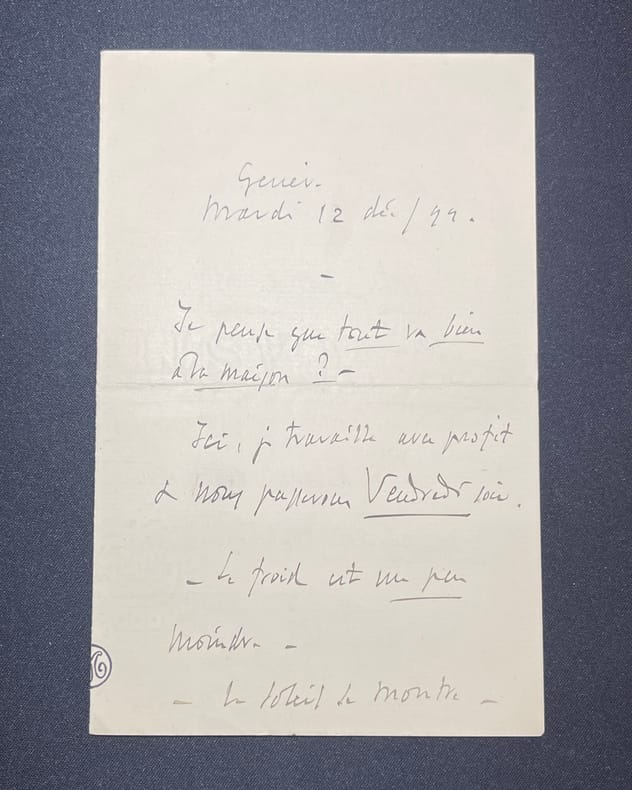 Genèv.
Mardi 12 déc/99.
–
Je pense que tout va bien
à la maison ? –
Ici, je travaille avec profit
& nous passerons Vendredi soir.
– Le froid est un peu
moindre –
– Le soleil se montre –